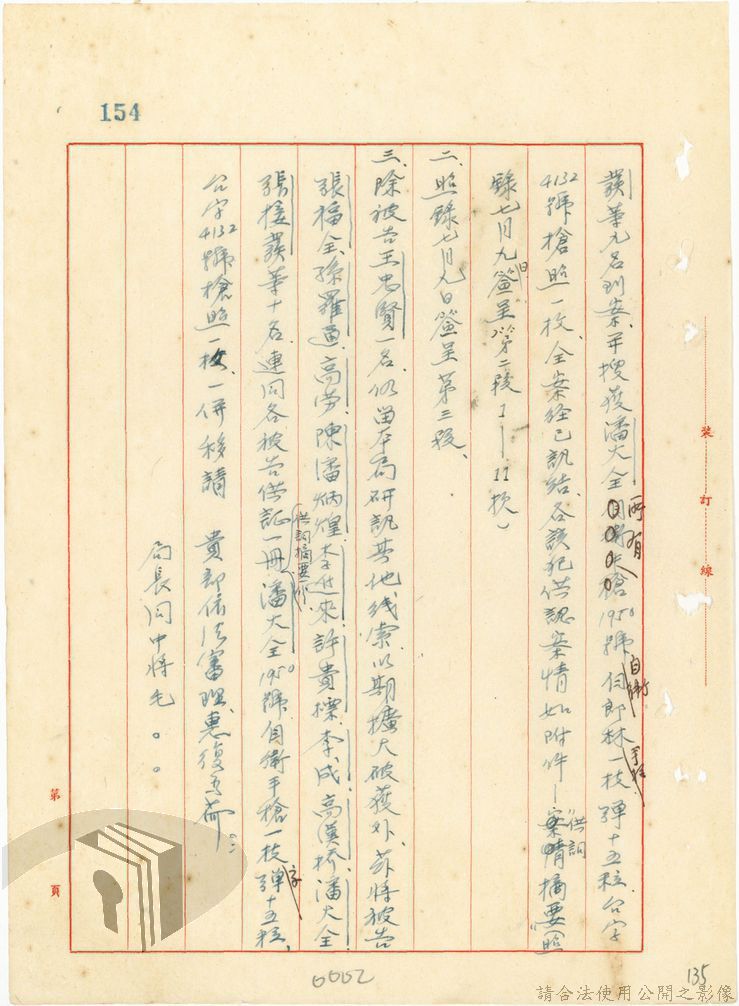 154
葉華九名到案、并搜獲潘大全所有自衛手槍1950號白郎林一枝彈十五粒、台字
4132號槍照一枚、全案經已訊結、各該犯供認案情如附件—供詞摘要（照
錄七月九日簽呈第二段1—11欵）
二、照錄七月九日簽呈第三段、
三、除被告王忠賢一名仍留本局研訊其他线索以期擴大破獲外、茲將被告
張福全、孫羅通、高勞、陳潘炳煌、李進來、許貴標、李成、高漢橋、潘大全、
張接、葉華十名、連同各被告供証一冊（供詞摘要）、潘大全1950號自衛手槍一枝彈十五粒、
台字4132號槍照一枚、一併移請 貴部依法審理、惠復為荷
局長 同中將毛。。
裝 訂 線
第 頁
0002
135
請合法使用公開之影像